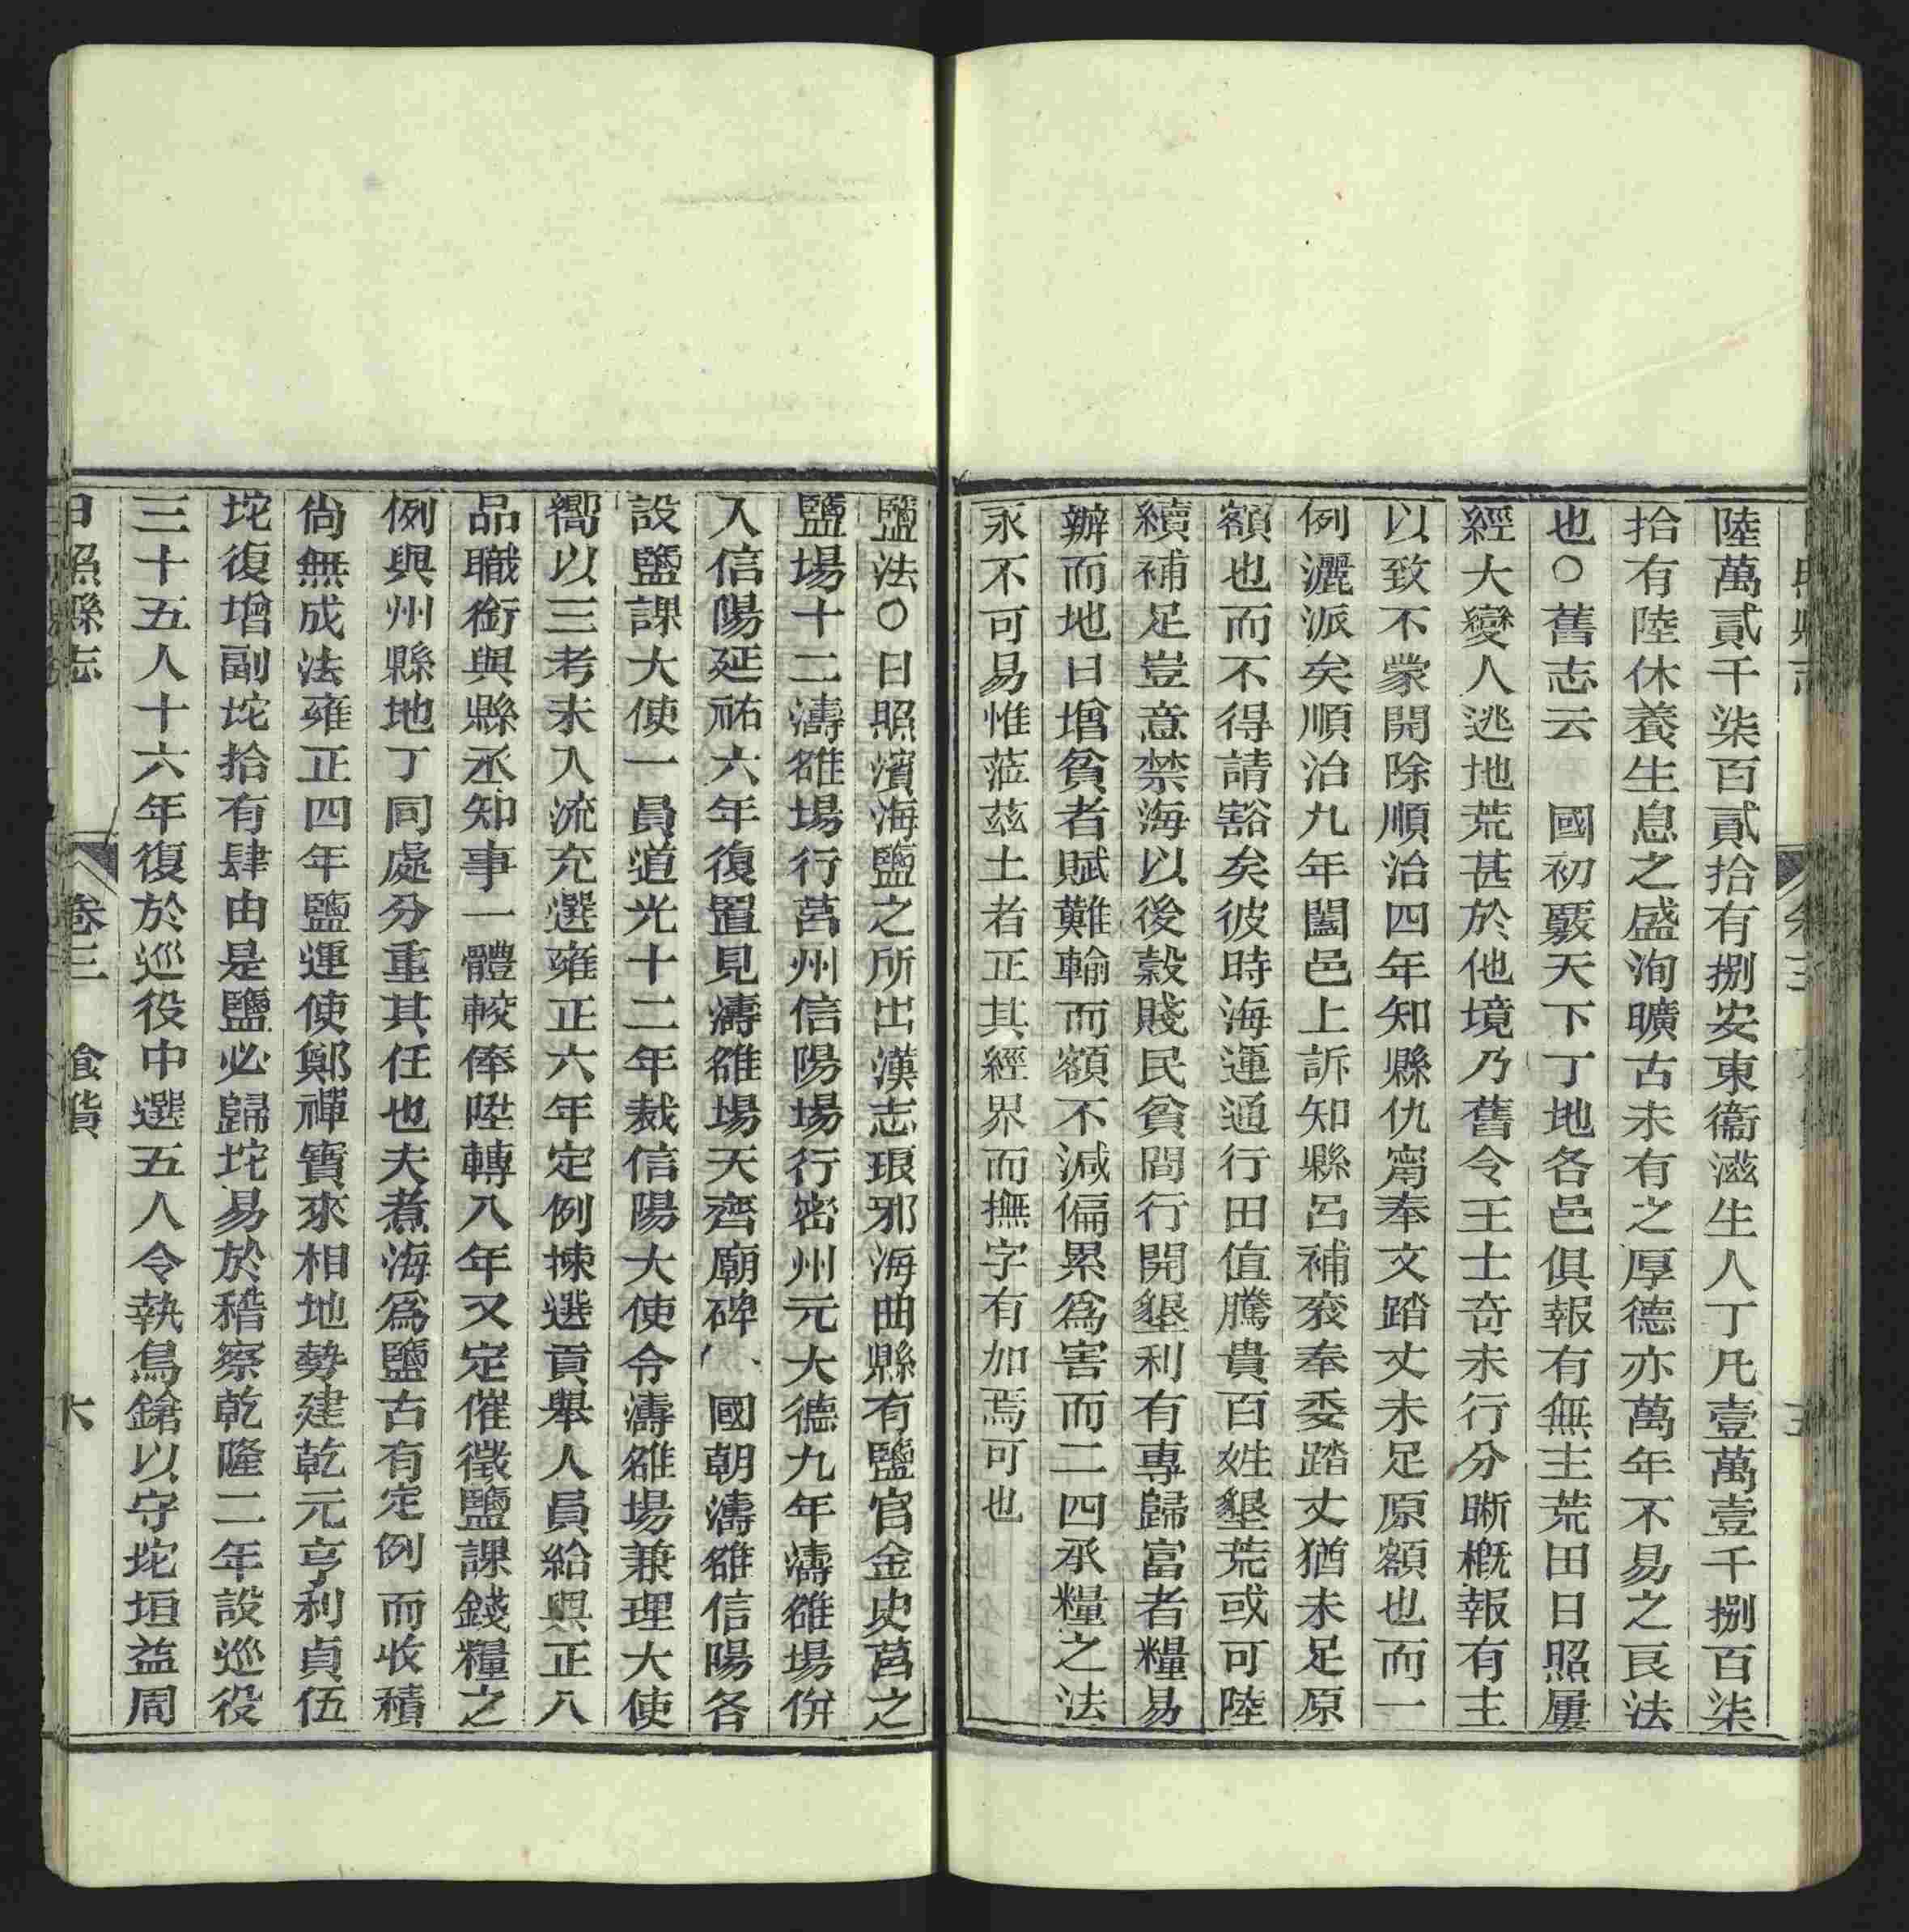 陸萬貳千柒百貳拾有捌安東衞滋生人丁凡壹萬壹千捌百柒
拾有陸休養生息之盛洵曠古未有之厚德亦萬年不易之良法
也○舊志云　國初覈天下丁地各邑俱報有無主荒田日照屢
經大變人逃地荒甚於他境乃舊令王士奇未行分晰槪報有主
以致不蒙開除順治四年知縣仇甯奉文踏丈未足原額也而一
例灑派矣順治九年闔邑上訴知縣呂補袞奉委踏丈猶未足原
額也而不得請豁矣彼時海運通行田值騰貴百姓墾荒或可陸
續補足豈意禁海以後穀賤民貧間行開墾利有專歸富者糧易
辦而地日增貧者賦難輸而額不減偏累爲害而二四承糧之法
永不可易惟蒞茲土者正其經界而撫字有加焉可也
鹽法○日照濱海鹽之所出漢志琅邪海曲縣有鹽官金史莒之
鹽場十二濤雒場行莒州信陽場行密州元大德九年濤雒場併
入信陽延祐六年復置見濤雒場天齊廟碑　國朝濤雒信陽各
設鹽課大使一員道光十二年裁信陽大使令濤雒場兼理大使
嚮以三考未入流充選雍正六年定例揀選貢舉人員給與正八
品職銜與縣丞知事一體較俸陞轉八年又定催徵鹽課錢糧之
例與州縣地丁同處分重其任也夫煮海爲鹽古有定例而收積
尙無成法雍正四年鹽運使鄭禪寶來相地勢建乾元亨利貞伍
坨復增副坨拾有肆由是鹽必歸坨易於稽察乾隆二年設巡役
三十五人十六年復於巡役中選五人令執鳥鎗以守坨垣益周
日照縣志　卷三　食貨　六